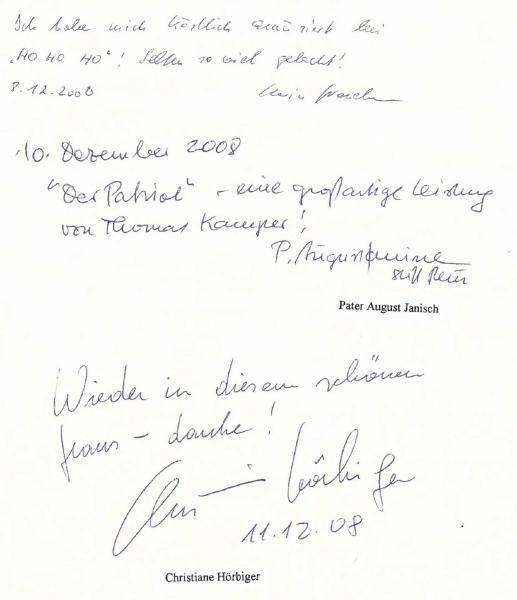 Ich habe mich köstlich amüsiert bei
„HO HO HO"! Selten so viel gelacht!
8.12.2008
10. Dezember 2008
"Der Patriot" - eine großartige Leistung
von Thomas Kamper!
P. August
Pater August Janisch
Wieder in diesem schönen
Haus - danke!
Christiane Hörbiger
11.12.08
Christiane Hörbiger